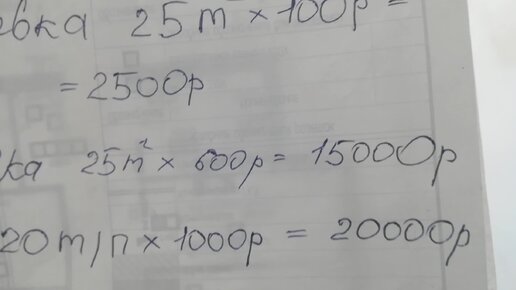 25 m² × 100р =
= 2500р
25m² × 600р = 15000р
20 m/п × 1000р = 20000р